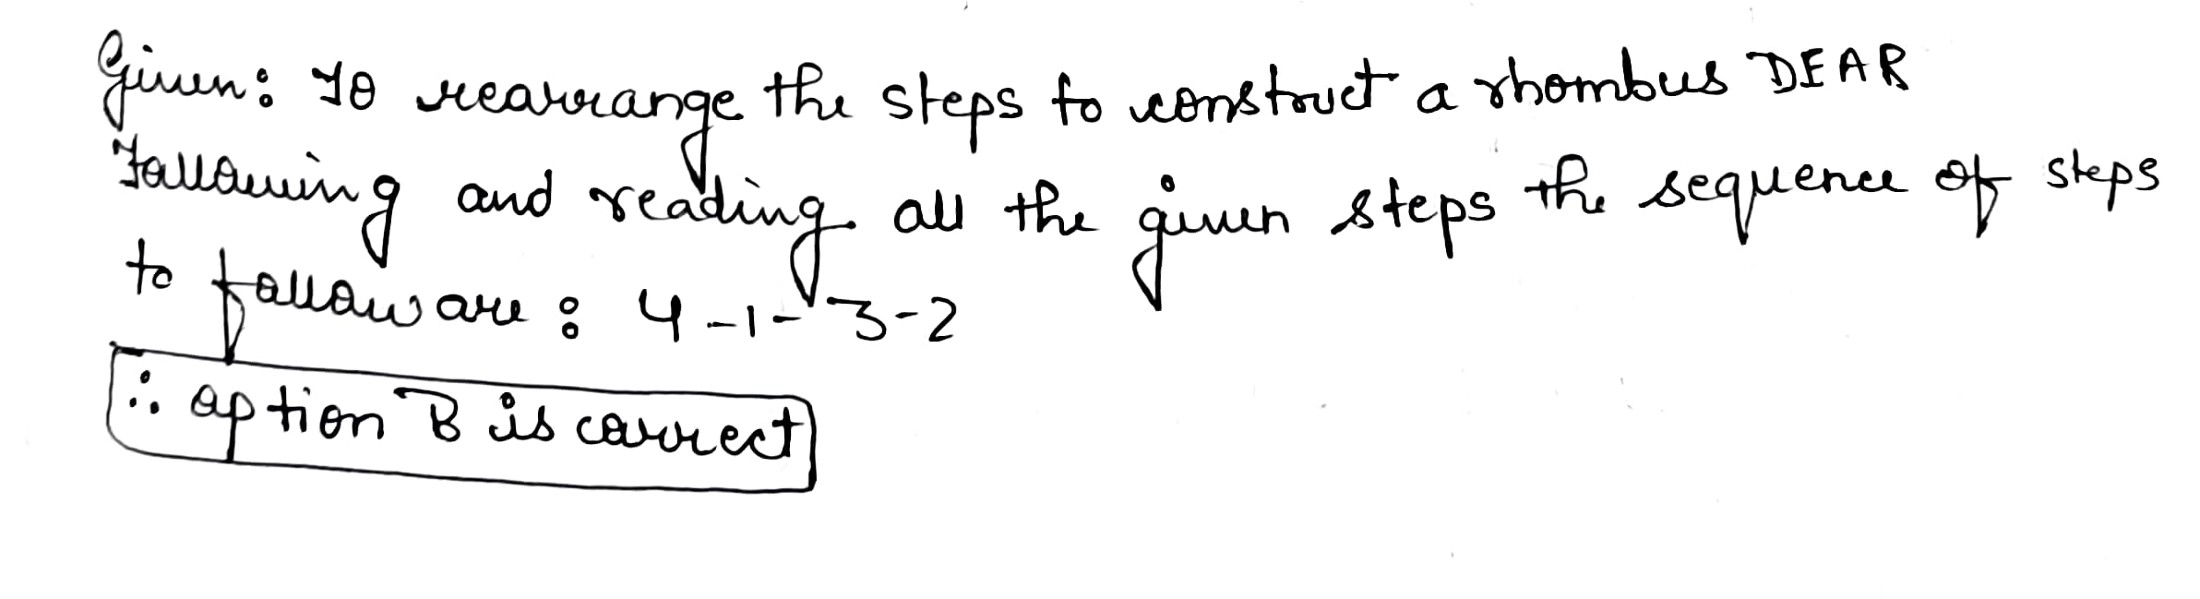 Given: To rearrange the steps to construct a rhombus DEAR
Following and reading all the given steps the sequence of steps
to follow are : 4-1-3-2
∴ option B is correct